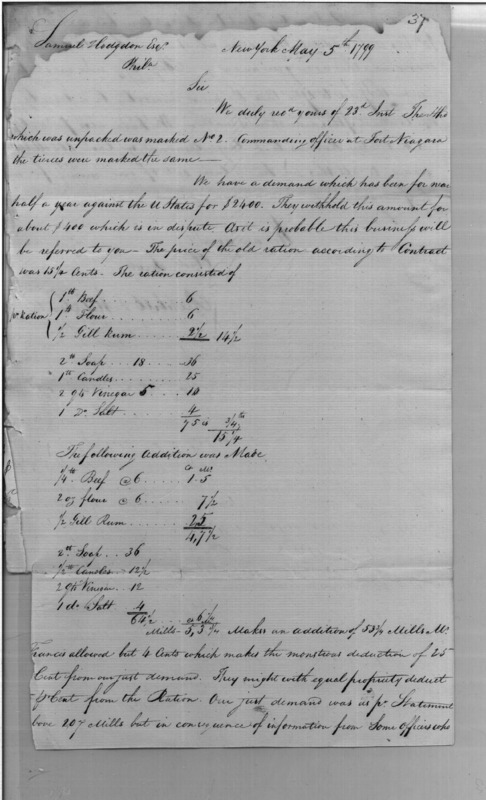 37
Samuel Hodgdon Esqr.
New York May 5th 1799
Phila
Sir
We duly recd yours of 23d Inst The Hhd
which was unpacked was marked No 2. Commanding officer at Fort Niagara
the tierces were marked the same
We have a demand which has been for near
half a year against the U States for $2400. They withhold this amount for
about $400 which is in dispute. As it is probable this business will
be referred to you - The price of the old ration according to Contract
was 15 1/2 Cents. The ration consisted of
pr Ration
1 lb Beef 6
1 lb Flour 6
1/2 Gill Rum 2 1/2 14 1/2
2 lb Soap 18 36
1 lb Candles 25
2 qts Vinegar 5 10
1 Do. Salt 4
75 3/4
15 1/4
The following Addition was Made
Ct Ms
1/4 lb Beef @ 6 1.5
2 oz flour @ 6 7 1/2
1/2 Gill Rum 2 5
4,7 1/2
2 lb Soap 36
1/2 lb Candles 12 1/2
2 qts Vinegar 12
1 do Salt 4
64 1/2
Mills 5,3 Makes an addition of Mills Mr.
Francis allowed but 4 Cents which makes the monstrous deduction of 25
Cent from our just demand. They might with equal propriety deduct
Cent from the Ration. Our just demand was as pr Statement
bove 207 Mills but in consequence of information from Some officers who